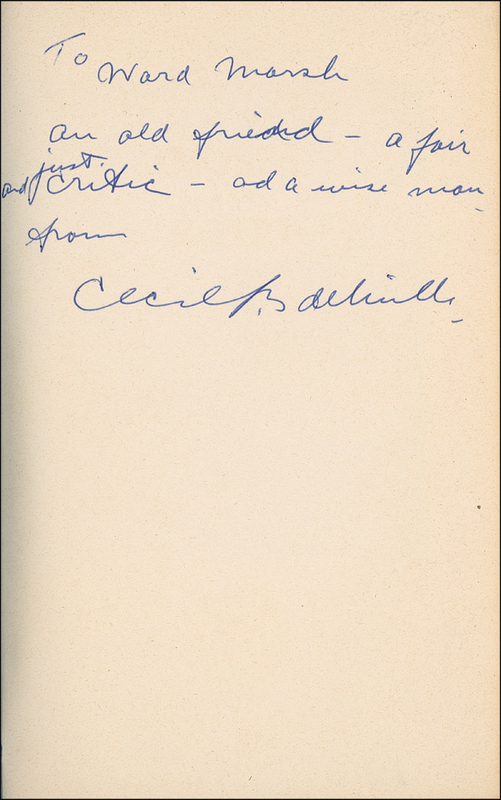 To Ward Marsh
an old friend – a fair
and just critic – ad a wise man
from
Cecil B deMille